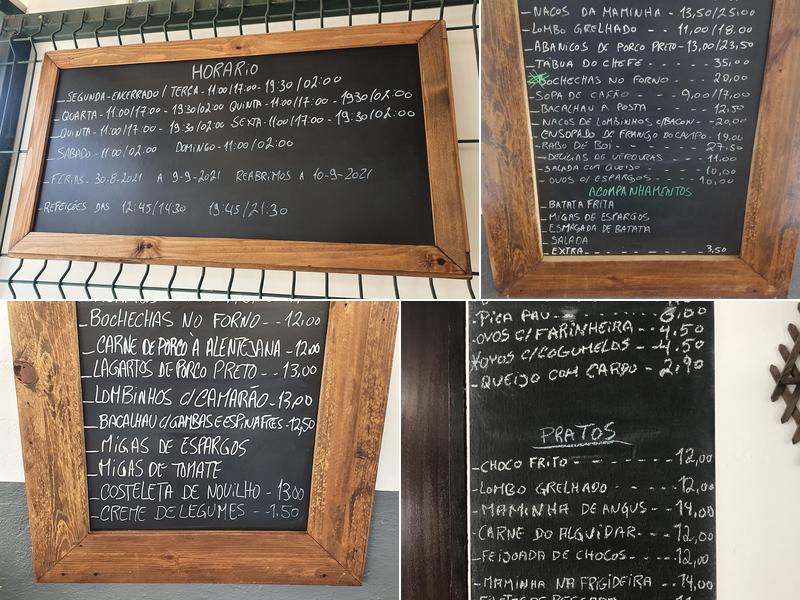 HORARIO
_SEGUNDA-ENCERRADO / TERÇA-11:00/17:00-19:30/02:00
_QUARTA-11:00/17:00-19:30/02:00 QUINTA-11:00/17:00-19:30/02:00
_QUINTA-11:00/17:00-19:30/02:00 SEXTA-11:00/17:00-19:30/02:00
_SABADO-11:00/02:00 DOMINGO-11:00/02:00
-FÉRIAS-30-8-2021 A 9-9-2021 REABRIMOS A 10-9-2021
-REFEIÇÕES DAS 12:45/14:30 19:45/21:30
_NACOS DA MAMINHA-13,50/25,00
_LOMBO GRELHADO--11,00/18.00
_ABANICOS DE PORCO PRETO-13,00/23,50
_TABUA DO CHEFE---35,00
BOCHECHAS NO FORNO--20,00
_SOPA DE CAÇÃO--9,00/17,00
_BACALHAU A POSTA---12,50
_NACOS DE LOMBINHOS C/BACON--20,00
_ENSOPADO DE FRANGO DO CAMPO-19.00
_RABO DE BOI---27.50
_DELICIAS DE VERDURAS--11.00
_SALADA COM QUEIJO--10,00
_OVOS C/ ESPARGOS---10,00
ACOMPANHAMENTOS
_BATATA FRITA
_MIGAS DE ESPARGOS
_ESMAGADA DE BATATA
_SALADA
_EXTRA---3,50
_BOCHECHAS NO FORNO--12,00
_CARNE DE PORCO A ALENTEJANA-12,00
_LAGARTOS DE PORCO PRETO--13,00
_LOMBINHOS C/CAMARÃO-13,00
_BACALHAU C/GAMBAS E ESPINAFRES-12,50
_MIGAS DE ESPARGOS
_MIGAS DE TOMATE
_COSTELETA DE NOVILHO-13,00
_CREME DE LEGUMES--1.50
-PICA PAU---6,00
.OVOS C/FARINHEIRA--4.50
OVOS C/COGUMELOS--4.50
-QUEIJO COM CARDO-2,90
PRATOS
-CHOCO FRITO------12,00
-LOMBO GRELHADO---12,00
-MAMINHA DE ANGUS--14,00
-CARNE DO ALGUIDAR--12,00
-FEIJOADA DE CHOCOS---12,00
-MAMINHA NA FRIGIDEIRA--14,00